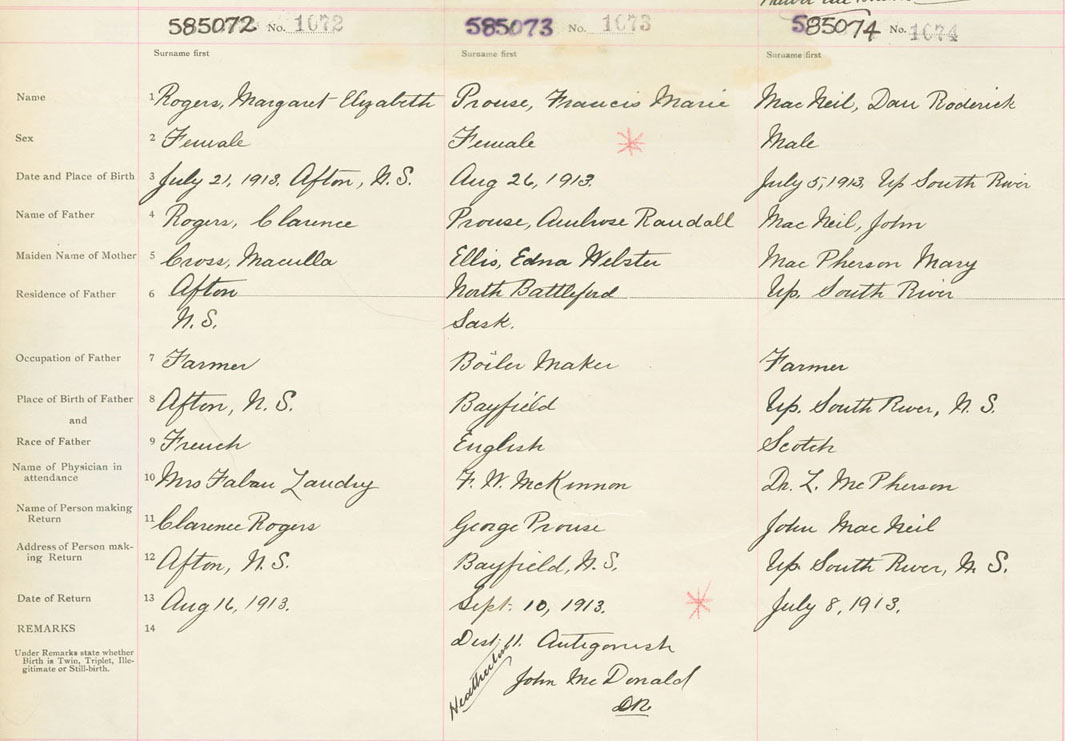 585072 No. 1072 585073 No. 1073 585074 No. 1074
Surname first Surname first Surname first
Name 1 Rogers, Margaret Elizabeth Prouse, Francis Marie Mac Neil, Dan Roderick
Sex 2 Female Female Male
Date and Place of Birth 3 July 21, 1913. Afton, N.S. Aug 26, 1913. July 5, 1913, Up South River
Name of Father 4 Rogers, Clarence Prouse, Ambrose Randall Mac Neil, John
Maiden Name of Mother 5 Cross, Ellis, Edna Webster Mac Pherson Mary
Residence of Father 6 Afton North Battleford Up. South River
N.S. Sask.
Occupation of Father 7 Farmer Boiler Maker Farmer
Place of Birth of Father 8 Afton, N.S. Bayfield Up. South River, N.S.
and
Race of Father 9 French English Scotch
Name of Physician in attendance 10 Mrs Landry F. W. McKinnon Dr. L. McPherson
Name of Person making Return 11 Clarence Rogers George Prouse John Mac Neil
Address of Person mak-ing Return 12 Afton, N.S. Bayfield, N.S. Up. South River, N.S.
Date of Return 13 Aug 16, 1913. Sept. 10, 1913. July 8, 1913.
REMARKS 14
Under Remarks state whether
Birth is Twin, Triplet, Ille-
gitimate or Still-birth.
Dist. 11. Antigonish
Heatherton
John McDonald
DR